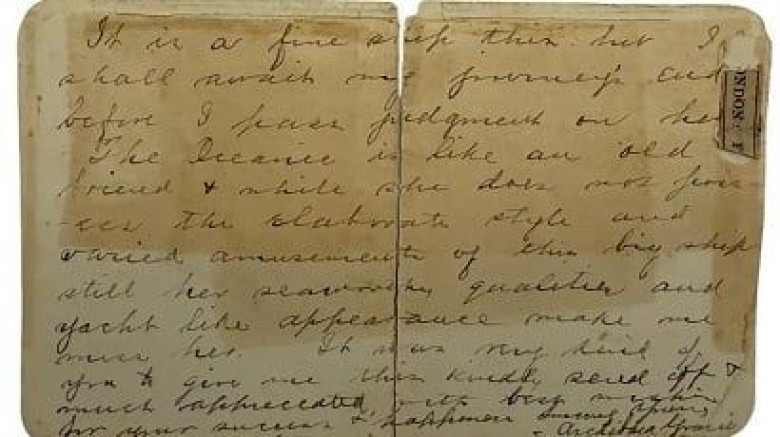 It is a fine ship this but I
shall await my journey's end
before I pass judgment on her
ONDON: F
The Oceanic is like an old
friend & while she does not poss-
-ess the elaborate style and
varied amusements of this big ship
still her seaworthy qualities and
yacht like appearance make me
miss her. It was very kind of
you to give me this kindly send off &
much appreciated, with best wishes
for your success & happiness
Archibald Gracie